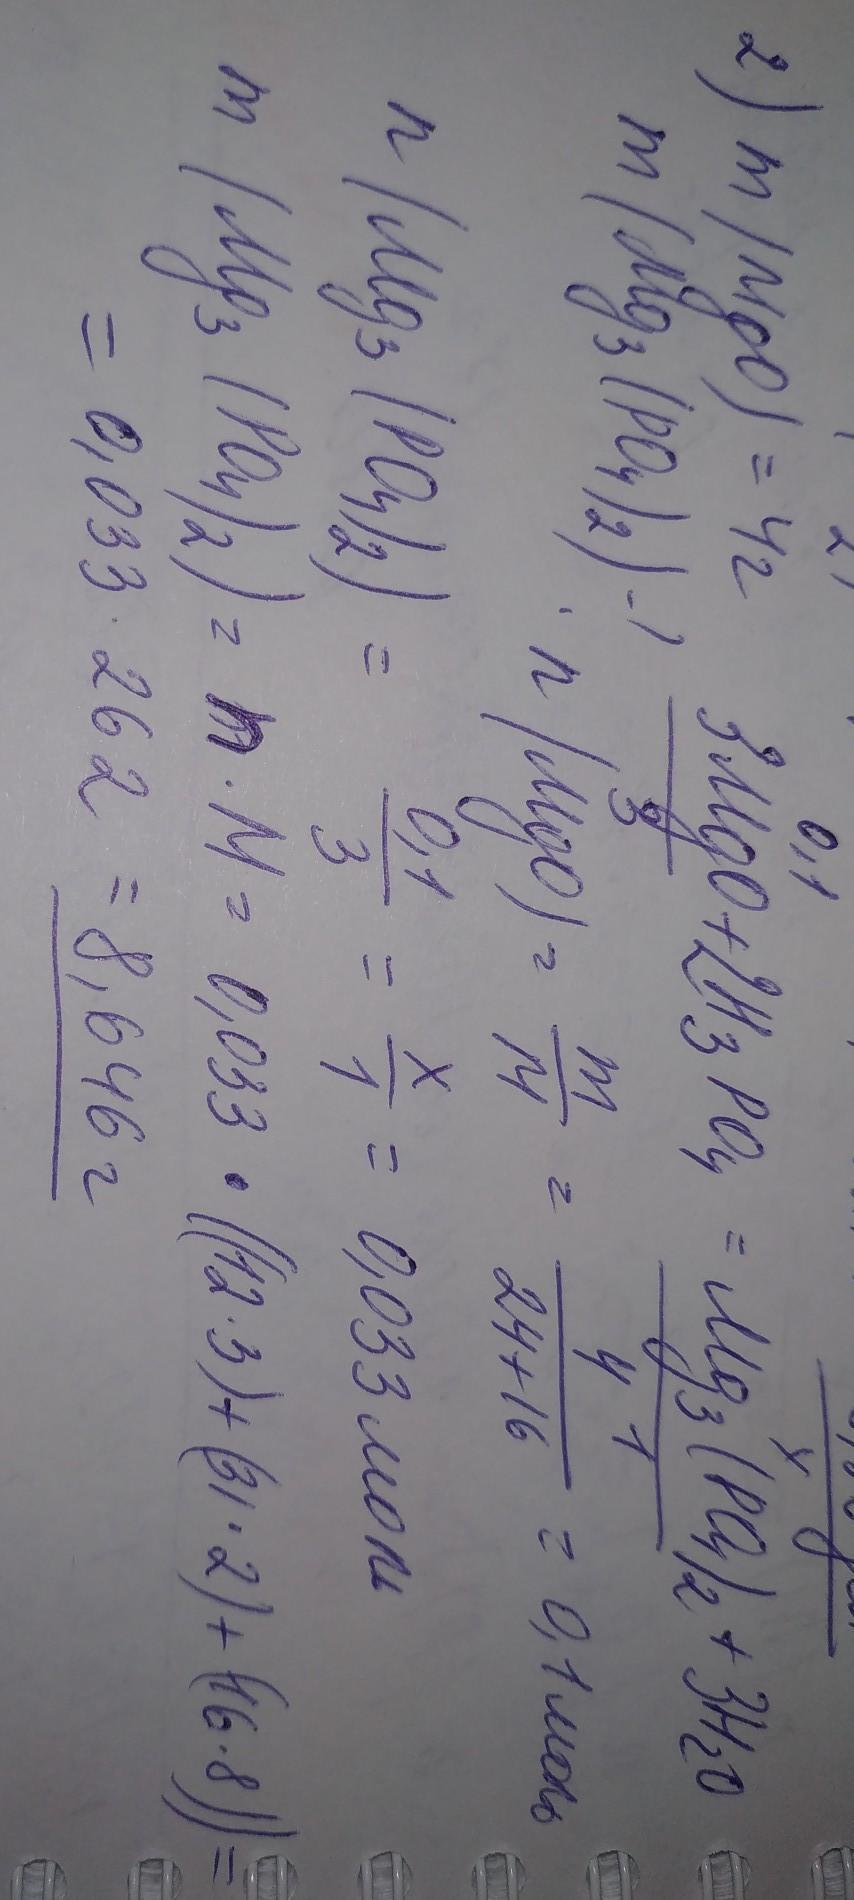 2) m(MgO) = 4г
0,1 x
3MgO + 2H3PO4 = Mg3(PO4)2 + 3H2O
m(Mg3(PO4)2) - ?
3 1
n(MgO) = m/M = 4/24+16 = 0,1 моль
n(Mg3(PO4)2) = 0,1/3 = x/1 = 0,033 моль
m(Mg3(PO4)2) = n · M = 0,033 · ((12·3)+(31·2)+(16·8)) =
= 0,033 · 262 = 8,646 г